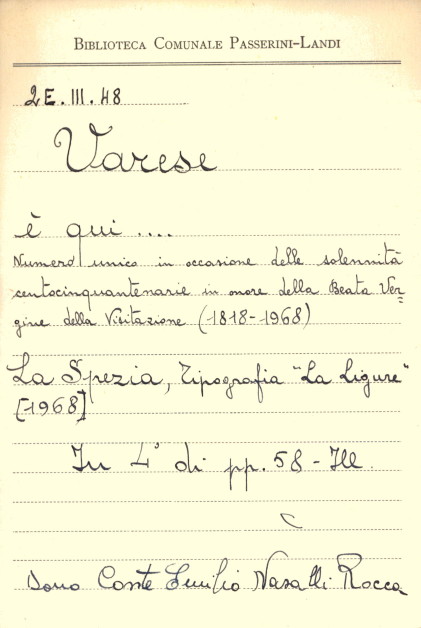 BIBLIOTECA COMUNALE PASSERINI-LANDI
2E.III.48
Varese
è qui ....
Numero unico in occasione delle solennità
centocinquantenarie in onore della Beata Ver=
gine della Visitazione (1818-1968)
La Spezia, Tipografia "La Ligure"
[1968]
In 4° di pp. 58 - Ill.
C
Dono Conte Emilio Nasalli Rocca